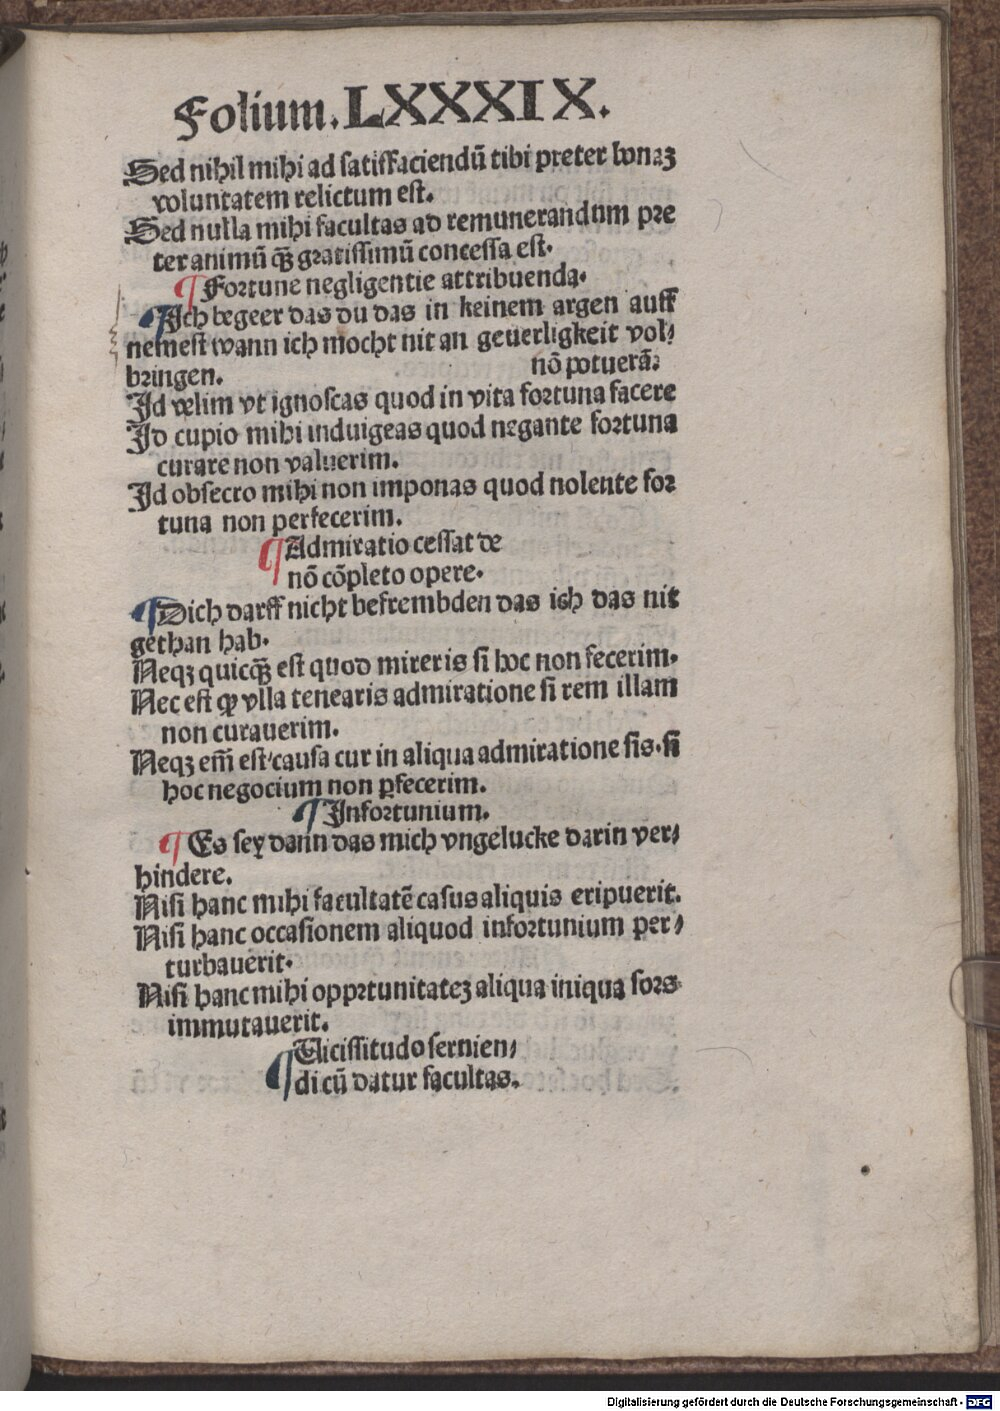 Folium. LXXXIX.
Sed nihil mihi ad satisfaciendū tibi preter bonaꝫ
voluntatem relictum est.
Sed nulla mihi facultas ad remunerandum pre
ter animū qꝫ̄ gratissimū concessa est.
¶ Fortune negligentie attribuenda.
¶ Ich begeer das du das in keinem argen auff
nemest wann ich mocht nit an geuerligkeit vol⸗
bringen.
nō potuerā:
Id velim vt ignoscas quod in vita fortuna facere
Id cupio mihi indulgeas quod negante fortuna
curare non valuerim.
Id obsecro mihi non imponas quod nolente for
tuna non perfecerim.
¶ Admiratio cessat de
nō cōpleto opere.
¶ Dich darff nicht befrembden das ich das nit
gethan hab.
Neqꝫ quicqꝫ̄ est quod mireris si hoc non fecerim.
Nec est ꝙ vlla tenearis admiratione si rem illam
non curauerim.
Neqꝫ em̄ est causa cur in aliqua admiratione sis. si
hoc negocium non ꝑfecerim.
¶ Infortunium.
¶ Es sey dann das mich vngelucke darin ver⸗
hindere.
Nisi hanc mihi facultatē casus aliquis eripuerit.
Nisi hanc occasionem aliquod infortunium per⸗
turbauerit.
Nisi hanc mihi opprtunitateꝫ aliqua iniqua fors
immutauerit.
¶ Vicissitudo sernien⸗
di cū datur facultas.
Digitalisierung gefördert durch die Deutsche Forschungsgemeinschaft - DFG